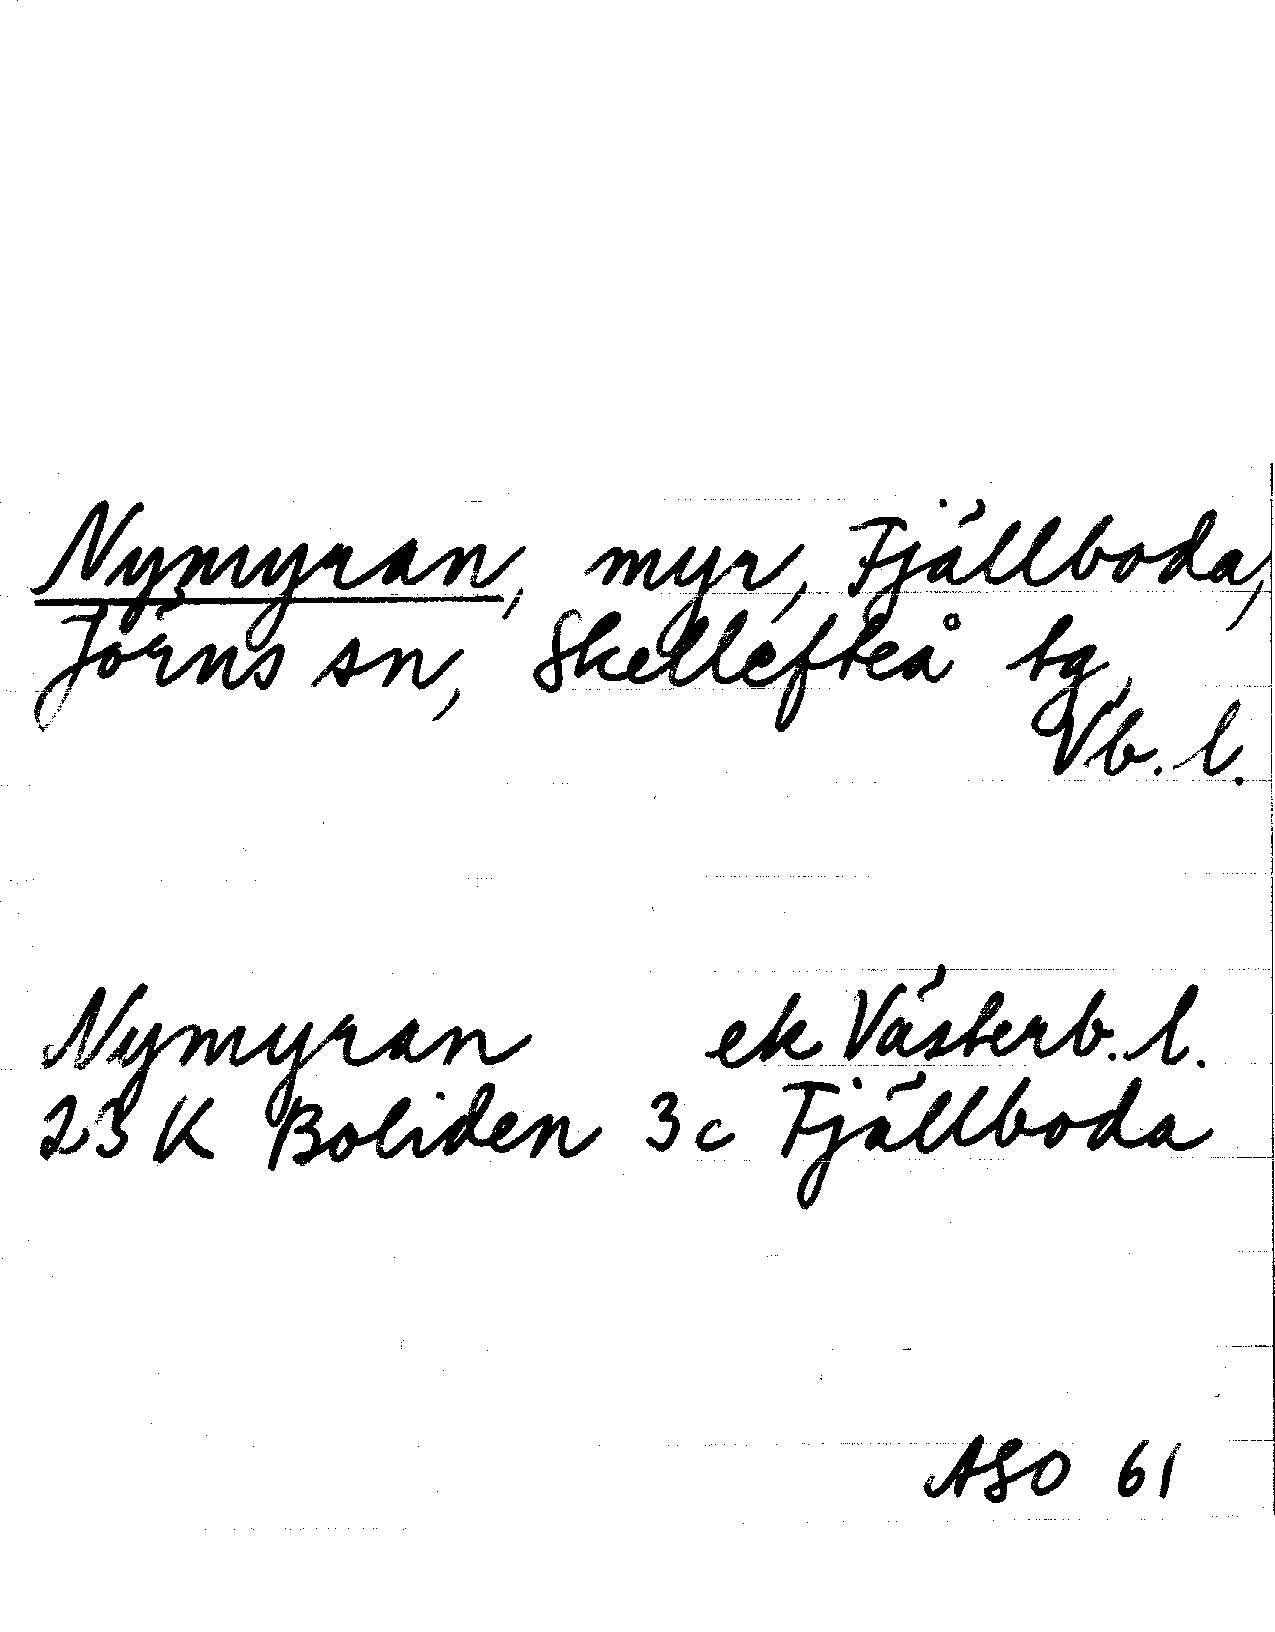 Nymyran, myr, Fjällboda,
Jörns sn, Skellefteå tg,
Vb. l.
Nymyran ek Västerb. l.
23 K Boliden 3 c Fjällboda
ASO 61